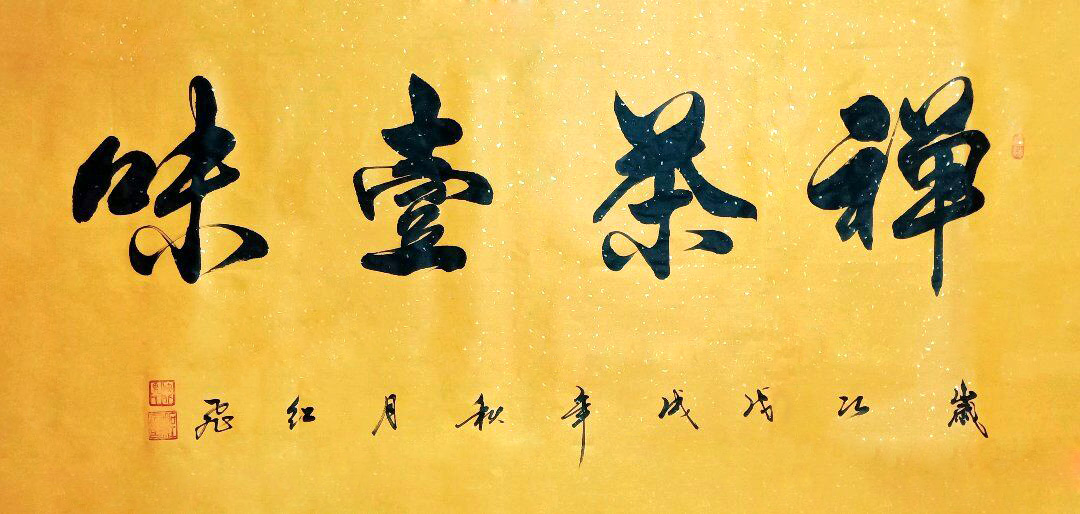 禅茶壹味
歲次戊戌年秋月红飛